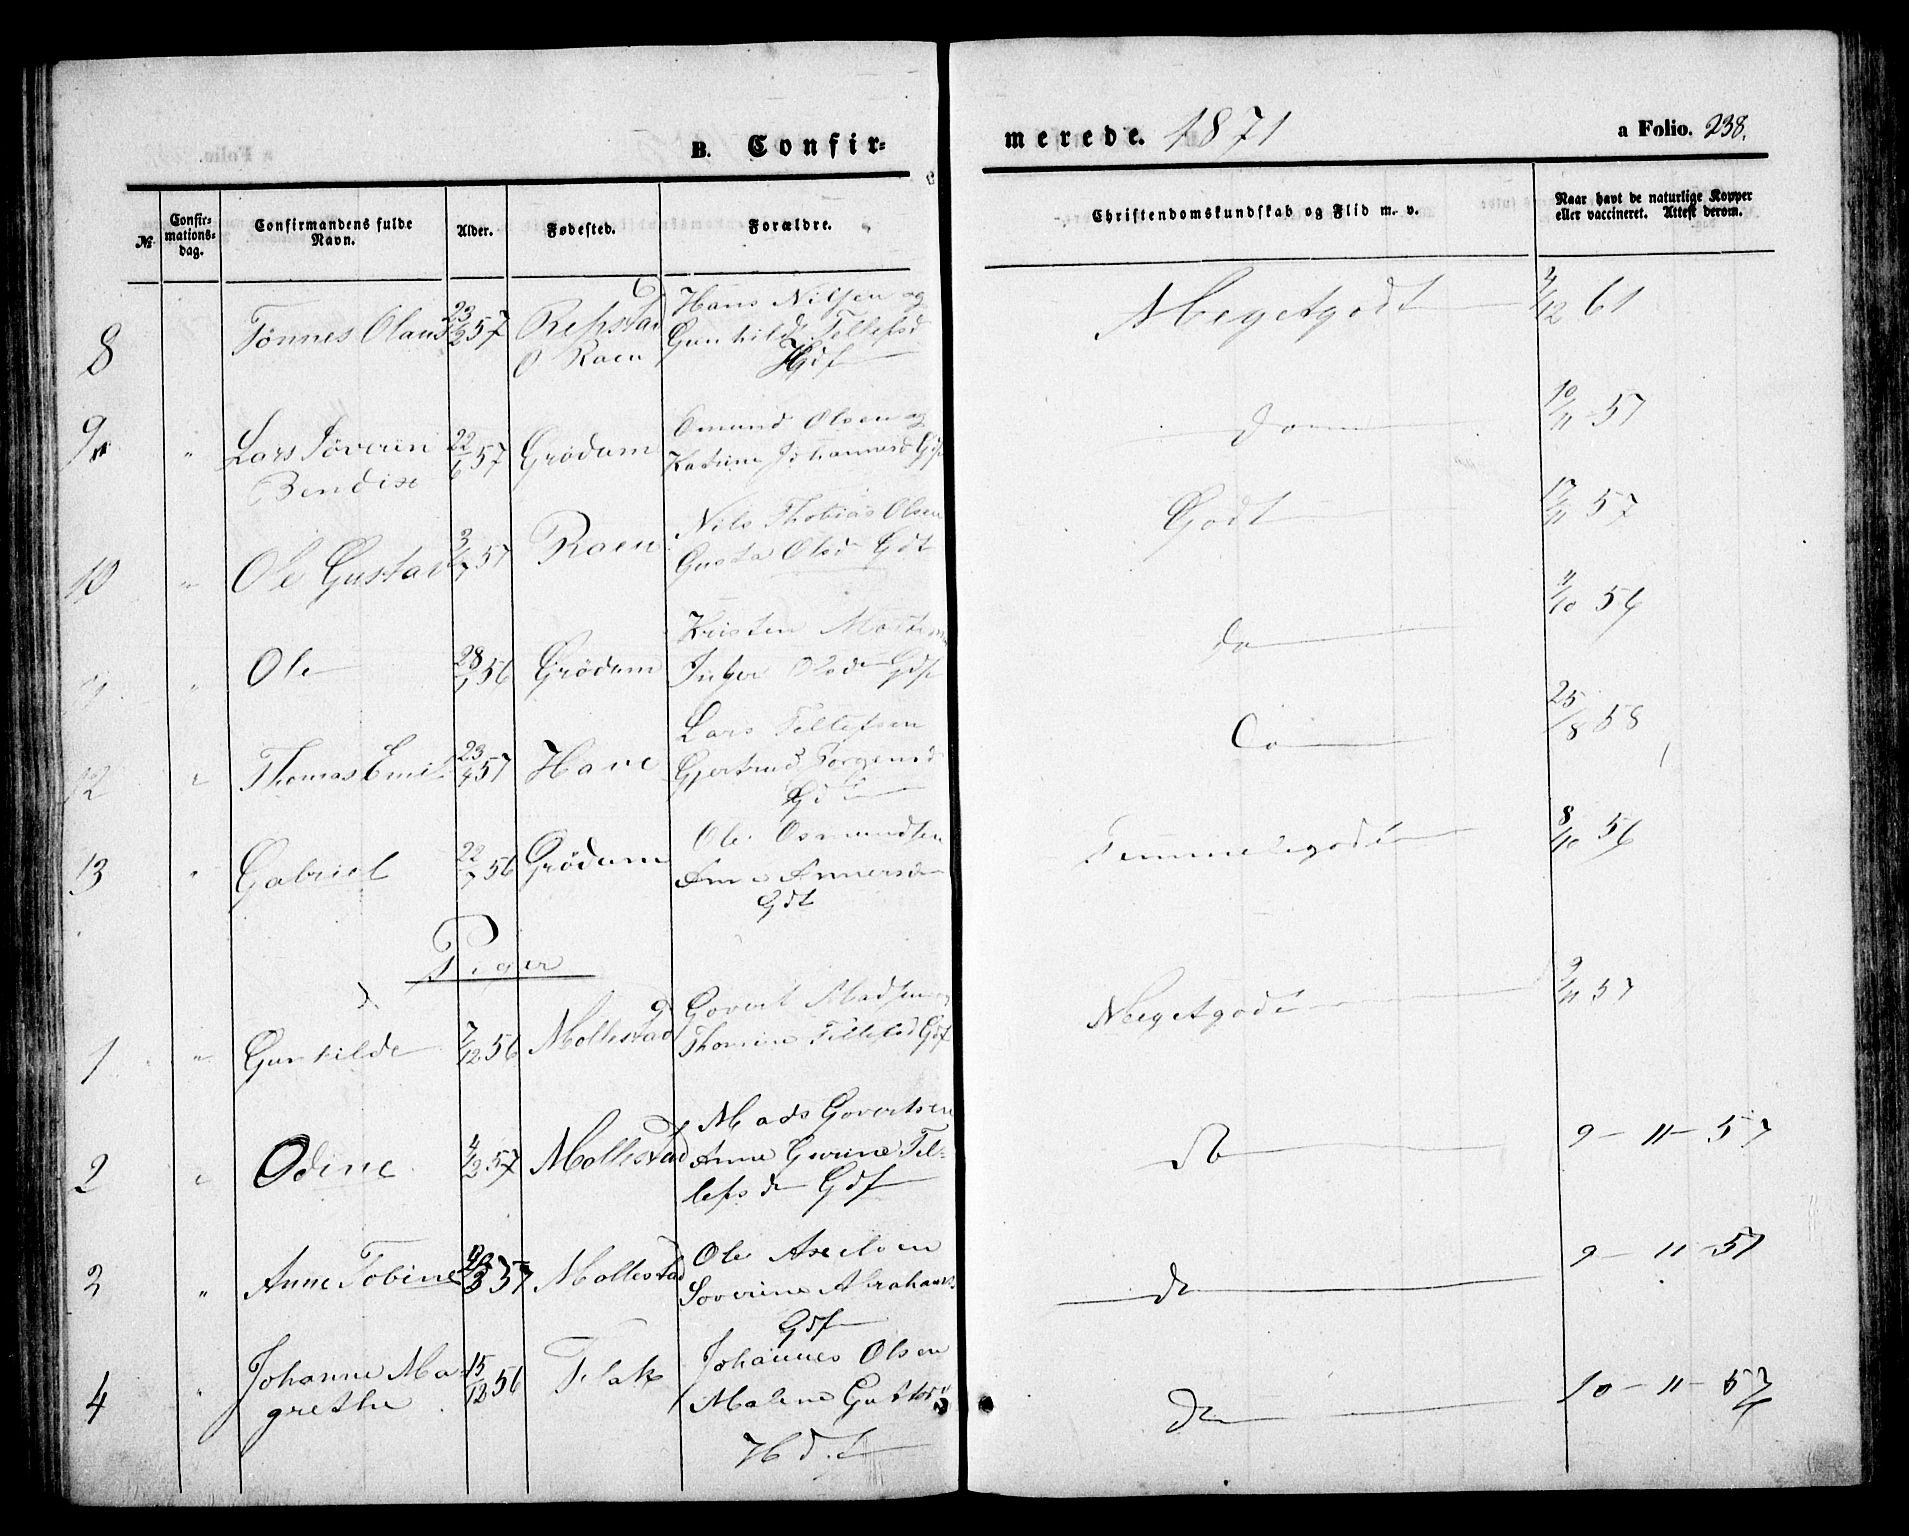 B. Confir-
merede. 1871
a Folio. 238.
№
Confir-
mations-
dag.
Confirmandens fulde
Navn.
Alder.
Fødested.
Forældre.
Christendomskundskab og Flid m. v.
Naar havt de naturlige Kopper
eller vaccineret. Attest derom.
8 Tønnes Olaus 23/2 57 Repstad
O Raen
Hans Nilsen og
Gunhild Tellefsd
Hdf
Megetgodt 4/12 61
9 " Lars Søverin
Bendix
22/6 57 Grødum
Omund Olsen og
Katrine Johannesd Gdf
do 10/11 57
10 " Ole Gustav 3/7 57 Raen
Nils Thobias Olsen
Gusta Olsd Gdf
Godt 17/11 57
" Ole 28/7 56 Grødum
Kristen
Inger Olsd Gdf
do 11/10 56
12 " Thomas Emil 23/4 57 Have
Lars Tellefsen
Gjertrud Torgensd
Gdf
do 25/8 58
13 " Gabriel 22/7 56 Grødum
Ole Osmundsen
Ane
Gdf
Temmeligodt 8/10 56
Piger
1 " Gunhilde 7/12 56 Mollestad
Govert Madsen og
Thomine Tellefsd Gdf
Megetgodt 9/11 57
2 " Odine 4/2 57 Mollestad
Mads Govertsen
Anne Gurine Tel-
lefsd Gdf
do 9 - 11 - 57
2 " Anne Tobine 57 Mollestad
Ole Axelsen
Soverine Abrahams
Gdf
do 9 - 11 - 57
4 " Johanne Ma
grethe
15/12 56 Flak
Johannes Olsen
Malene
Hdf
do 10 - 11 - 57